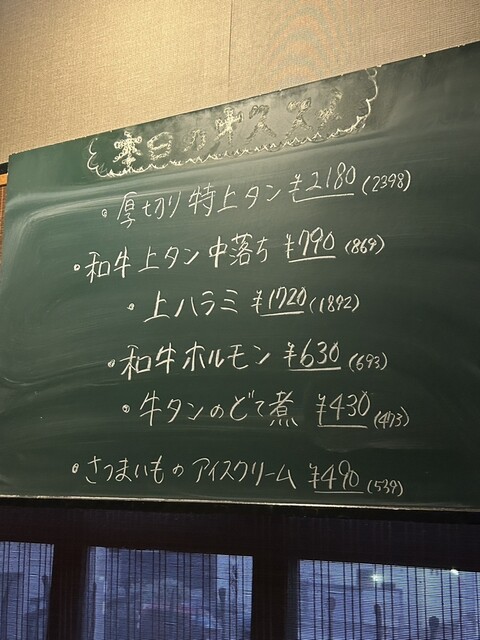 本日のオススメ
・厚切り特上タン ¥2180 (2398)
・和牛上タン中落ち ¥790 (869)
・上ハラミ ¥1720 (1892)
・和牛ホルモン ¥630 (693)
・牛タンのどて煮 ¥430 (473)
・さつまいものアイスクリーム ¥490 (539)